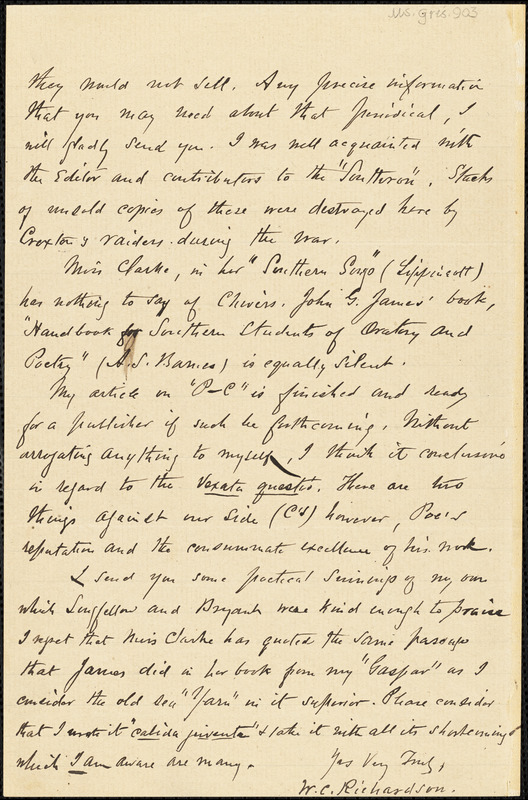 Ms. Gris. 903
they would not sell. Any precise information
that you may need about that Periodical, I
will gladly send you. I was well acquainted with
the Editor and contributors to the "Southron". Stacks
of unsold copies of these were destroyed here by
Croxton's raiders during the war.
Miss Clarke, in her "Southern Song" (Lippincott)
has nothing to say of Chivers. John G. James' book,
"Handbook for Southern Students of Oratory and
Poetry" (A.S. Barnes) is equally silent.
My article on "P–C" is finished and ready
for a publisher if such be forthcoming. Without
arrogating anything to myself, I think it conclusive
in regard to the Vexata questio. There are two
things against our side (C's) however, Poe's
reputation and the consummate excellence of his work.
I send you some poetical of my own
which Longfellow and Bryant were kind enough to praise
I regret that Miss Clarke has quoted the same passage
that James did in her book from my "Gaspar" as I
consider the old sea "Yarn" in it superior. Please consider
that I wrote it "calida juventa" & take it with all its shortcomings
which I am aware are many.
Yrs Very Truly,
W.C. Richardson.